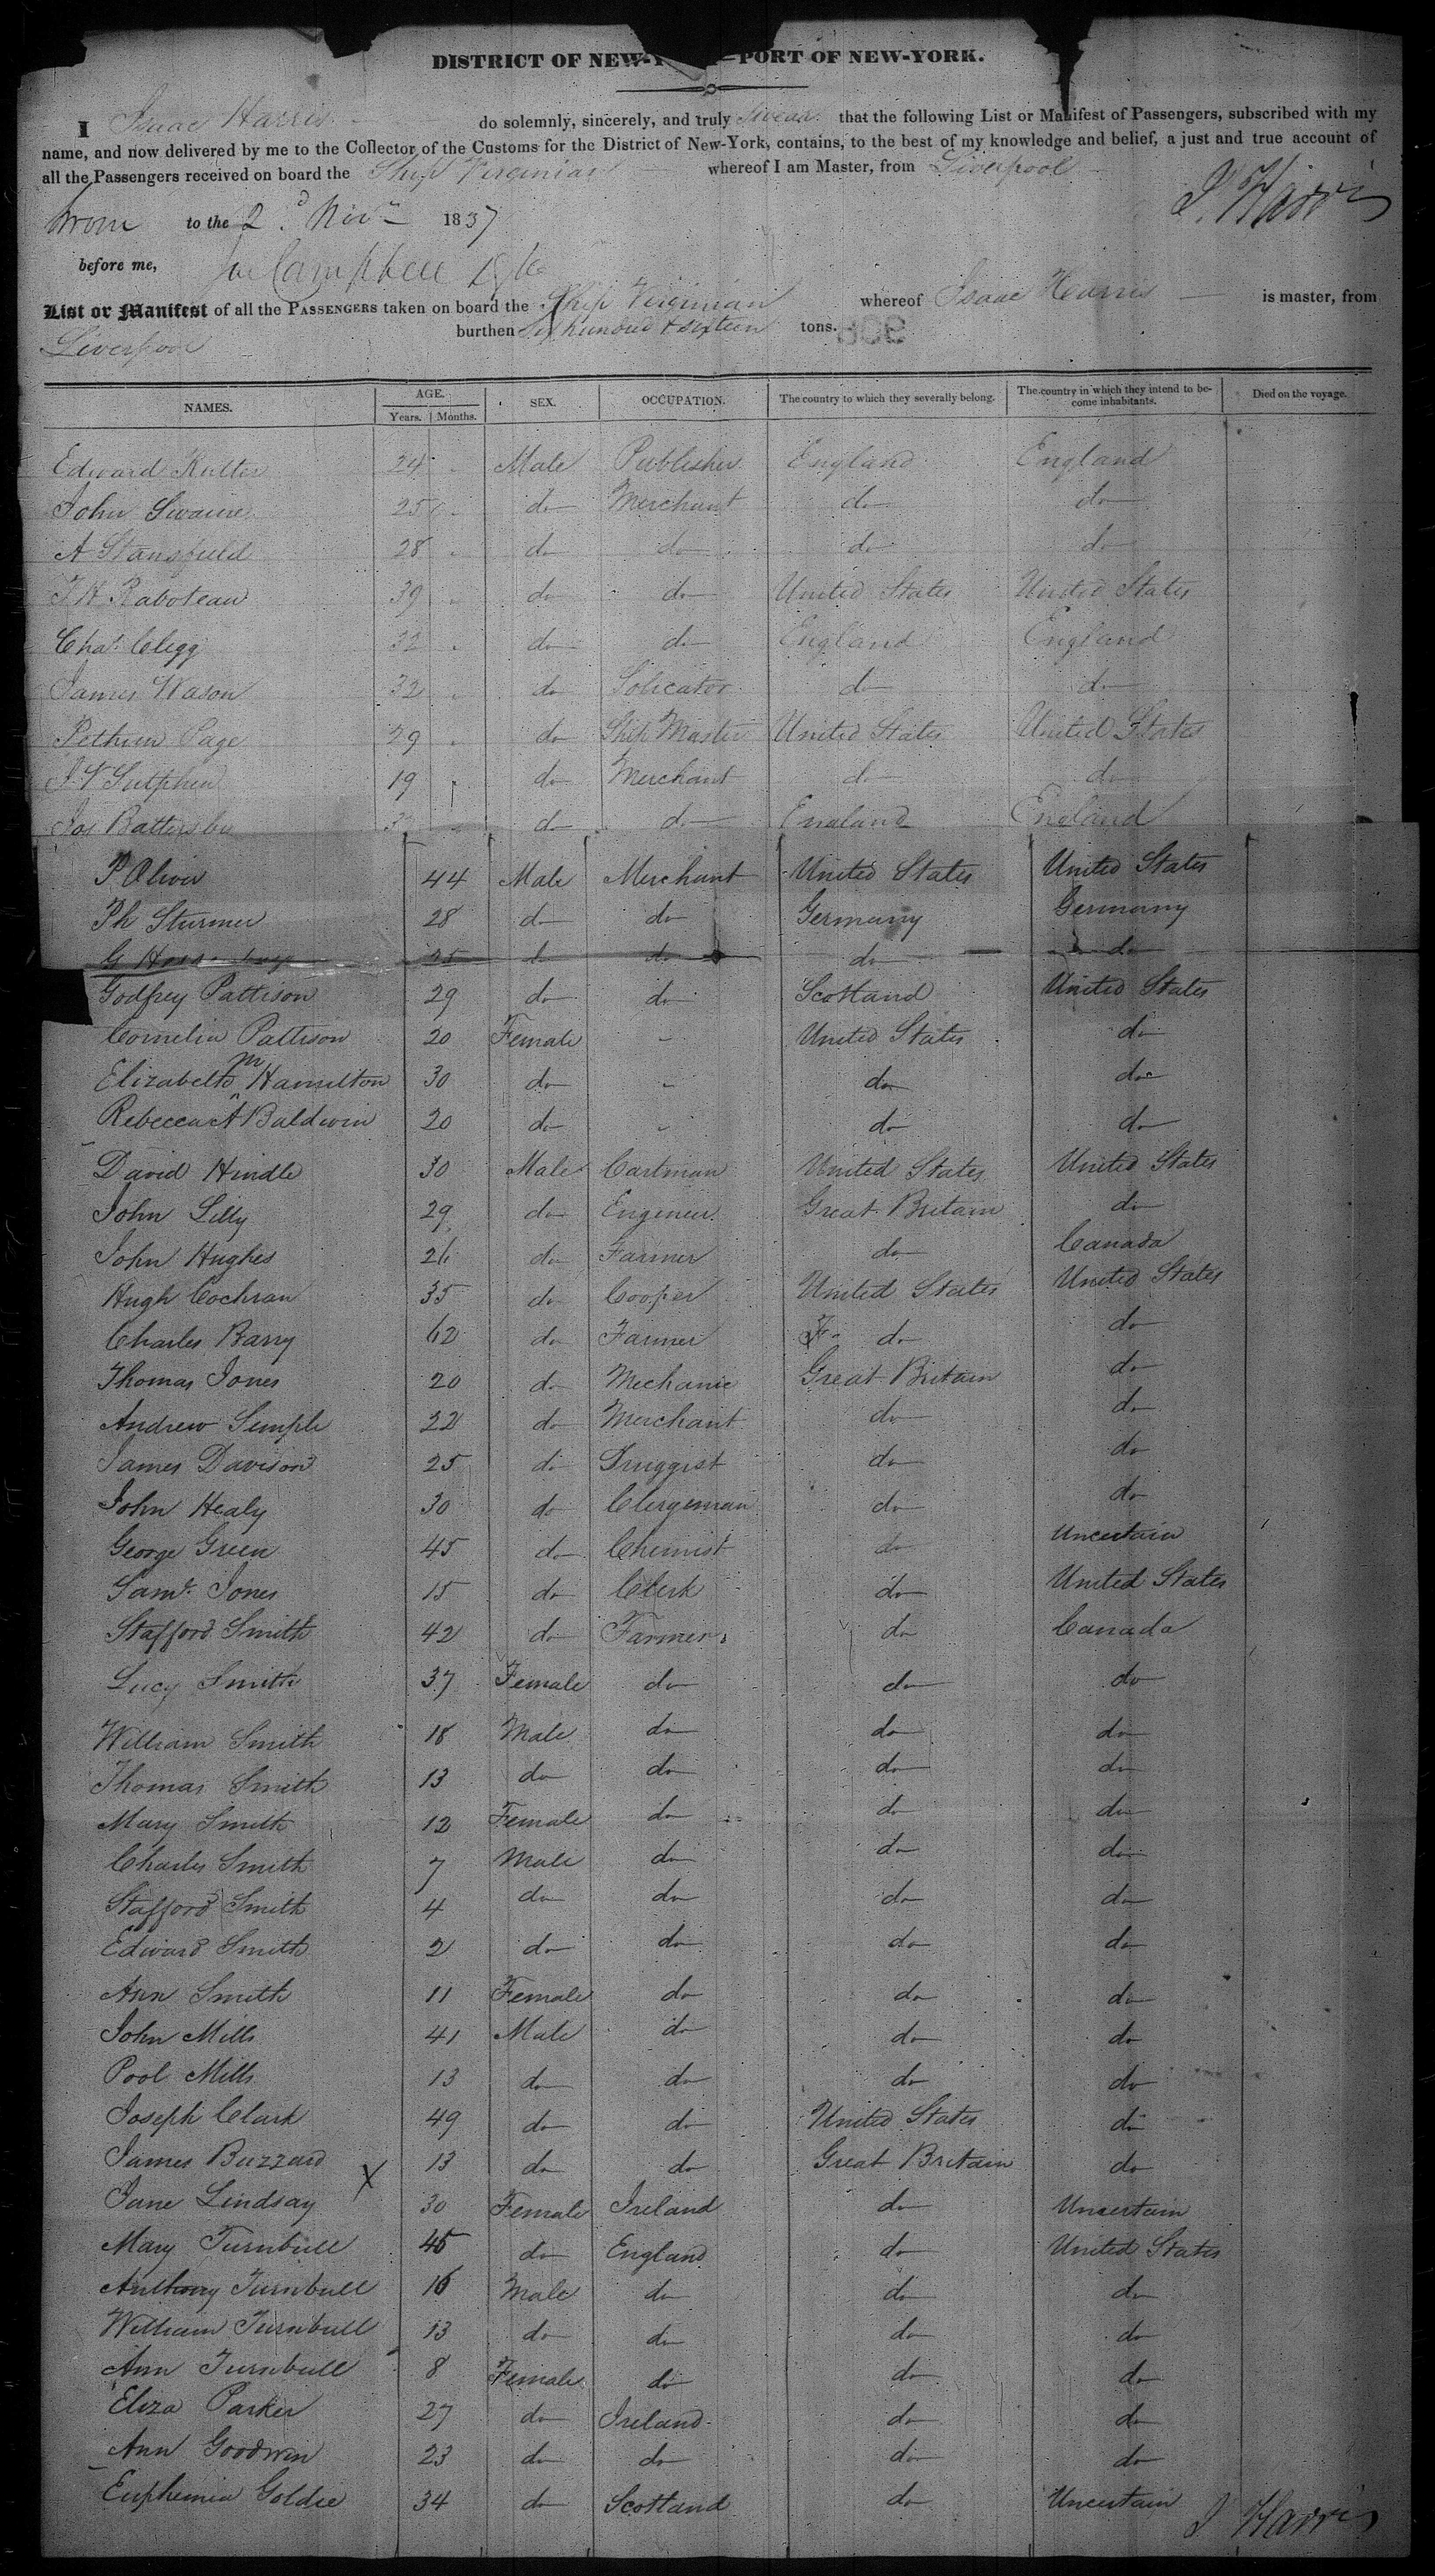 DISTRICT OF NEW- PORT OF NEW-YORK.
I Isaac Harris do solemnly, sincerely, and truly swear that the following List or Manifest of Passengers, subscribed with my
name, and now delivered by me to the Collector of the Customs for the District of New-York, contains, to the best of my knowledge and belief, a just and true account of
all the Passengers received on board the Ship Virginian whereof I am Master, from Liverpool
Sworn to the 2d Nov 1837 I. Harris
before me, Campbell
List or Manifest of all the PASSENGERS taken on board the Ship Virginian whereof Isaac Harris is master, from
Liverpool burthen Six hundred & sixteen tons.
NAMES. AGE. Years. Months. SEX. OCCUPATION. The country to which they severally belong. The country in which they intend to become inhabitants. Died on the voyage.
Edward 24 Male Publisher England England
John Swaine 25 do Merchant do do
A Stansfield 28 do do do do
Raboteau 39 do do United States United States
Chas Clegg 32 do do England England
James Wason 32 do Solicator do do
Page 29 do Ship Master United States United States
Sutphen 19 do Merchant do do
Jos Battersby do do England England
P Oliver 44 Male Merchant United States United States
Ph Sturmer 28 do do Germany Germany
G 25 do do do do
Godfrey Pattison 29 do do Scotland United States
Cornelia Pattison 20 Female - United States do
Elizabeth M Hamilton 30 do - do do
Rebecca A Baldwin 20 do - do do
David Hindle 30 Male Cartman United States United States
John Lilly 29 do Engineer Great Britain do
John Hughes 26 do Farmer do Canada
Hugh Cochran 35 do Cooper United States United States
Charles Barry 62 do Farmer do do
Thomas Jones 20 do Mechanic Great Britain do
Andrew Semple 22 do Merchant do do
James Davison 25 do Druggist do do
John Healy 30 do Clergeman do do
George Green 45 do Chemist do Uncertain
Saml. Jones 15 do Clerk do United States
Stafford Smith 42 do Farmer do Canada
Lucy Smith 37 Female do do do
William Smith 18 Male do do do
Thomas Smith 13 do do do do
Mary Smith 12 Female do do do
Charles Smith 7 Male do do do
Stafford Smith 4 do do do do
Edward Smith 2 do do do do
Ann Smith 11 Female do do do
John Mills 41 Male do do do
Pool Mills 13 do do do do
Joseph Clark 49 do do United States do
James Buzzard 13 do do Great Britain do
Jane Lindsay X 30 Female Ireland do Uncertain
Mary Turnbull 45 do England do United States
Anthony Turnbull 16 Male do do do
William Turnbull 13 do do do do
Ann Turnbull 8 Female do do do
Eliza Parker 27 do Ireland do do
Ann Goodwin 23 do do do do
Euphemia Goldie 34 do Scotland do Uncertain
I Harris